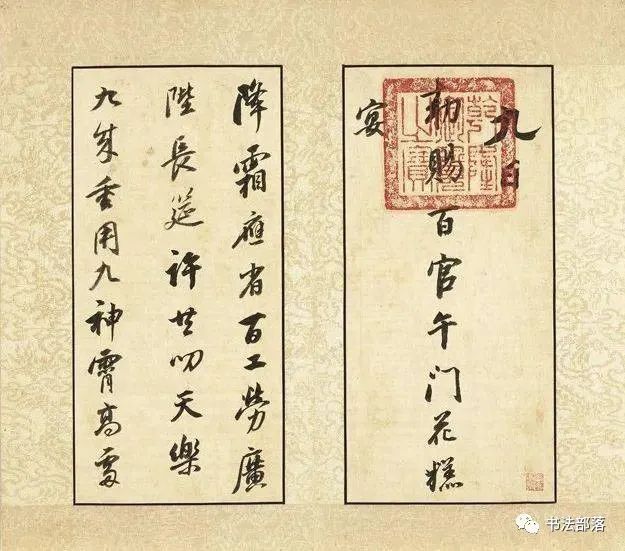 九日
勅賜百官午门花糕
宴
乾隆
御覽
之寶
降霜應省百工勞廣
陛長筵許共叨天樂
九成重用九神霄高處
书法部落